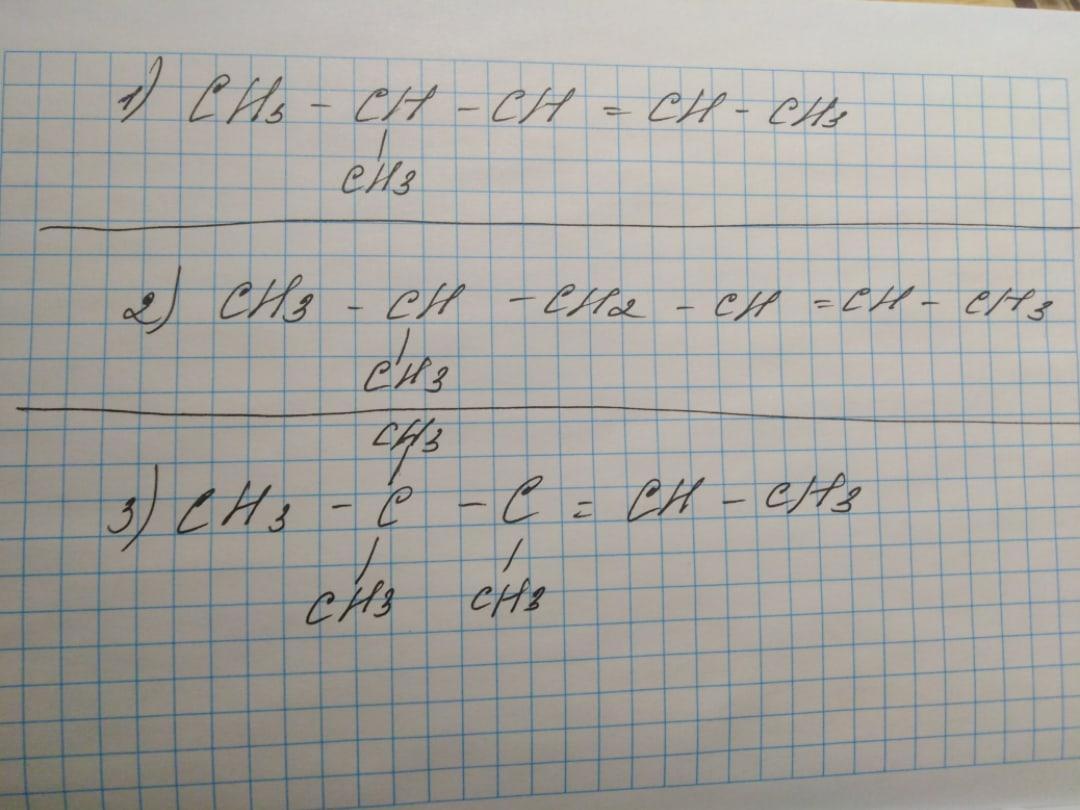 1) CH3 - CH - CH = CH - CH3
|
CH3
2) CH3 - CH - CH2 - CH = CH - CH3
|
CH3
CH3
|
3) CH3 - C - C = CH - CH3
| |
CH3 CH3